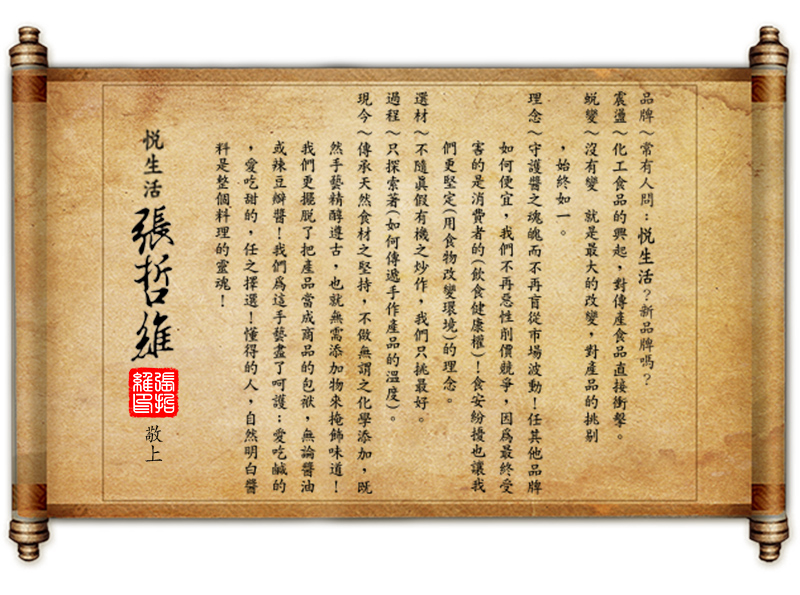 品牌～常有人問：悦生活？新品牌嗎？
震盪～化工食品的興起，對傳產食品直接衝擊。
蛻變～沒有變　就是最大的改變，對產品的挑剔
，始終如一。
理念～守護醬之魂魄而不再盲從市場波動！任其他品牌
如何便宜，我們不再惡性削價競爭，因為最終受
害的是消費者的(飲食健康權)！食安紛擾也讓我
們更堅定(用食物改變環境)的理念。
選材～不隨真假有機之炒作，我們只挑最好。
過程～只探索著(如何傳遞手作產品的溫度)。
現今～傳承天然食材之堅持，不做無謂之化學添加，既
然手藝精醇遵古，也就無需添加物來掩飾味道！
我們更擺脫了把產品當成商品的包袱，無論醬油
或辣豆瓣醬！我們為這手藝盡了呵護；愛吃鹹的
，愛吃甜的，任之擇選！懂得的人，自然明白醬
料是整個料理的靈魂！
悦生活 張哲維
張哲維印
敬上